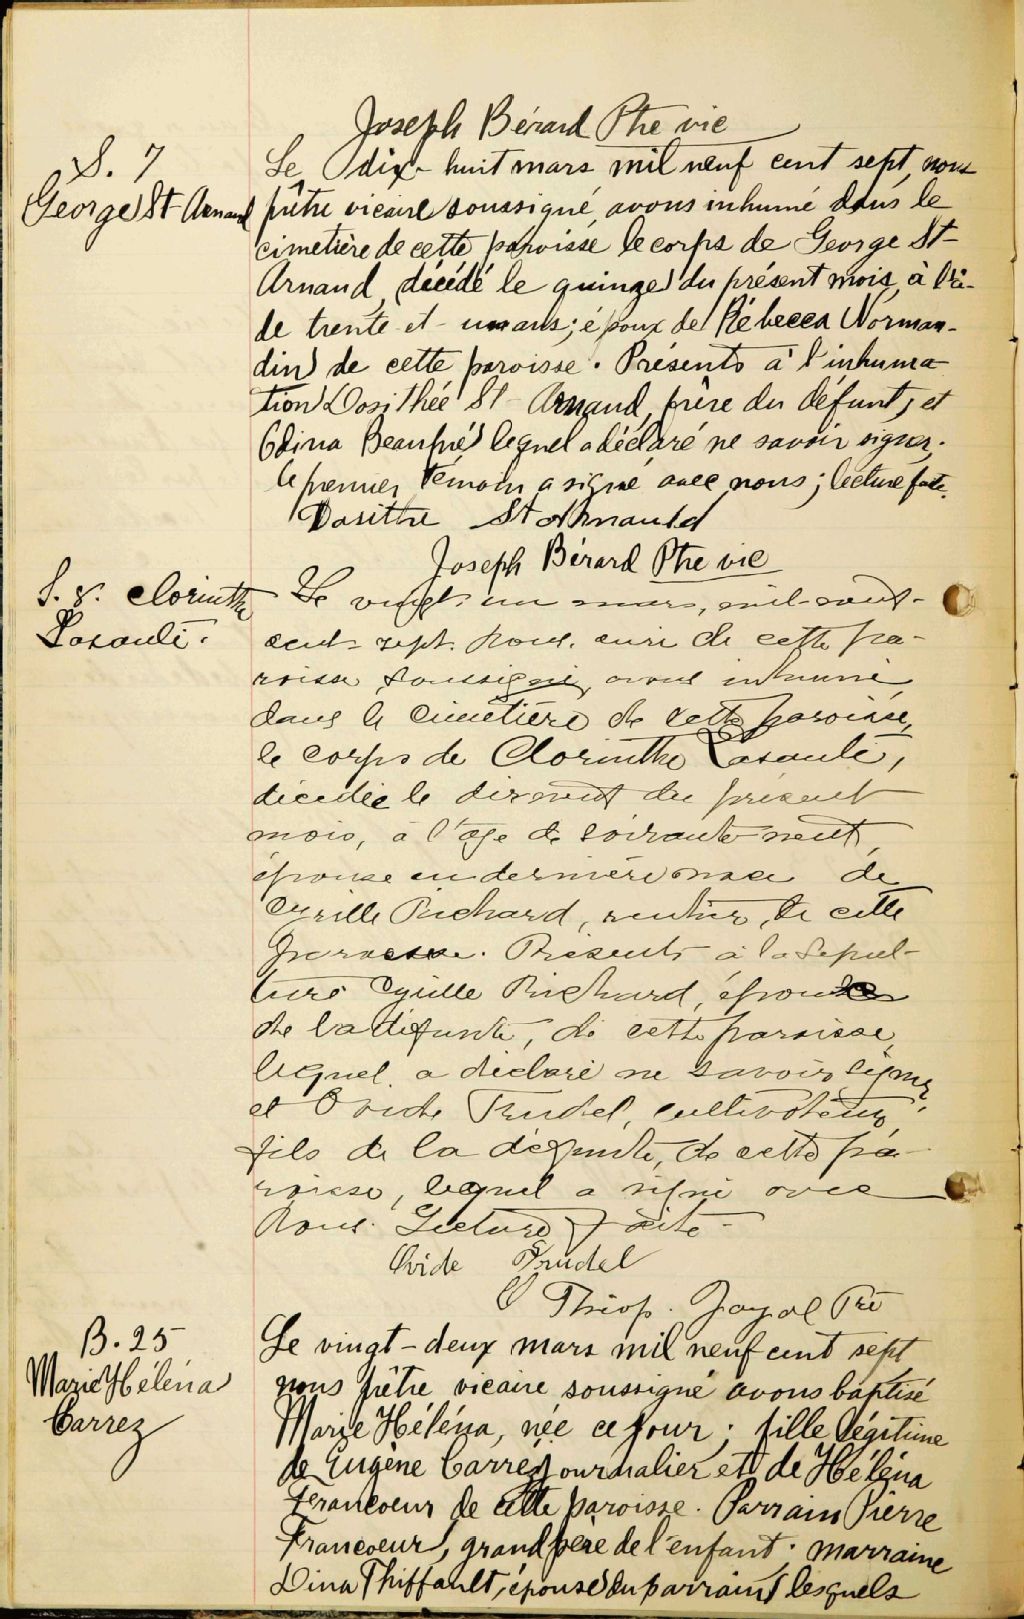 Joseph Bérard Ptre vic
S. 7
George St Arnaud
Le dix-huit mars mil neuf cent sept, nous
prêtre vicaire soussigné, avons inhumé dans le
cimetière de cette paroisse le corps de George St-
Arnaud, décédé le quinze du présent mois, à l'â-
de trente-et-un ans; époux de Rébecca Norman-
din de cette paroisse. Présents à l'inhuma
tion Dosithée St-Arnaud, frère du défunt, et
Beaupré lequel a déclaré ne savoir signer.
le premier témoin a signé avec nous; lecture faite.
Dosithe St Arnauld
Joseph Bérard Ptre vic
S. 8. Clorinthe
Lasanté.
Le vingt-un mars, mil-neuf-
cent-sept. Nous, curé de cette pa-
roisse soussigné, avons inhumé
dans le cimetière de cette paroisse,
le corps de Clorinthe Lasanté,
décédée le dixneuf du présent
mois, à l'âge de soixante-neuf,
épouse en dernière noce de
Cyrille Richard, rentier, de cette
paroisse. Présents à la sépul-
ture Cyrille Richard, époux
de la défunte, de cette paroisse,
lequel a déclaré ne savoir signer,
et Ovide Trudel, cultivateur,
fils de la défunte, de cette pa-
roisse, lequel a signé avec
Nous. Lecture faite-
Ovide Trudel
Théop. Joyal Ptre
B. 25
Marie Héléna
Carrez
Le vingt-deux mars mil neuf cent sept,
nous prêtre vicaire soussigné avons baptisé
Marie Héléna, née ce jour; fille légitime
de Eugène Carrez, journalier et de Héléna
Francoeur de cette paroisse. Parrain Pierre
Francoeur, grand père de l'enfant; marraine
Dina Thiffault, épouse du parrain lesquels